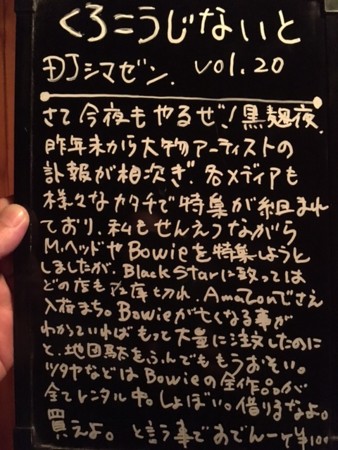 くろこうじないと
DJシマゼン. vol.20
さて今夜もやるぜ!黒麹夜.
昨年末から大物アーティストの
訃報が相次ぎ. 各メディアも
様々なカタチで特集が組まれ
ており、私もせんえつながら
M.ヘッドやBowieを特集しようと
しましたが、Black Starに致っては
どの店も在庫切れ、Amazonでさえ
入荷まち。Bowieが亡くなる事が
わかっていればもっと大量に注文したのに
と、地団駄をふんでももうおそい。
ツタヤなどはBowieの全作品が
全てレンタル中。しょぼい。借りるなよ。
買えよ。と言う事でおでんーそ¥100